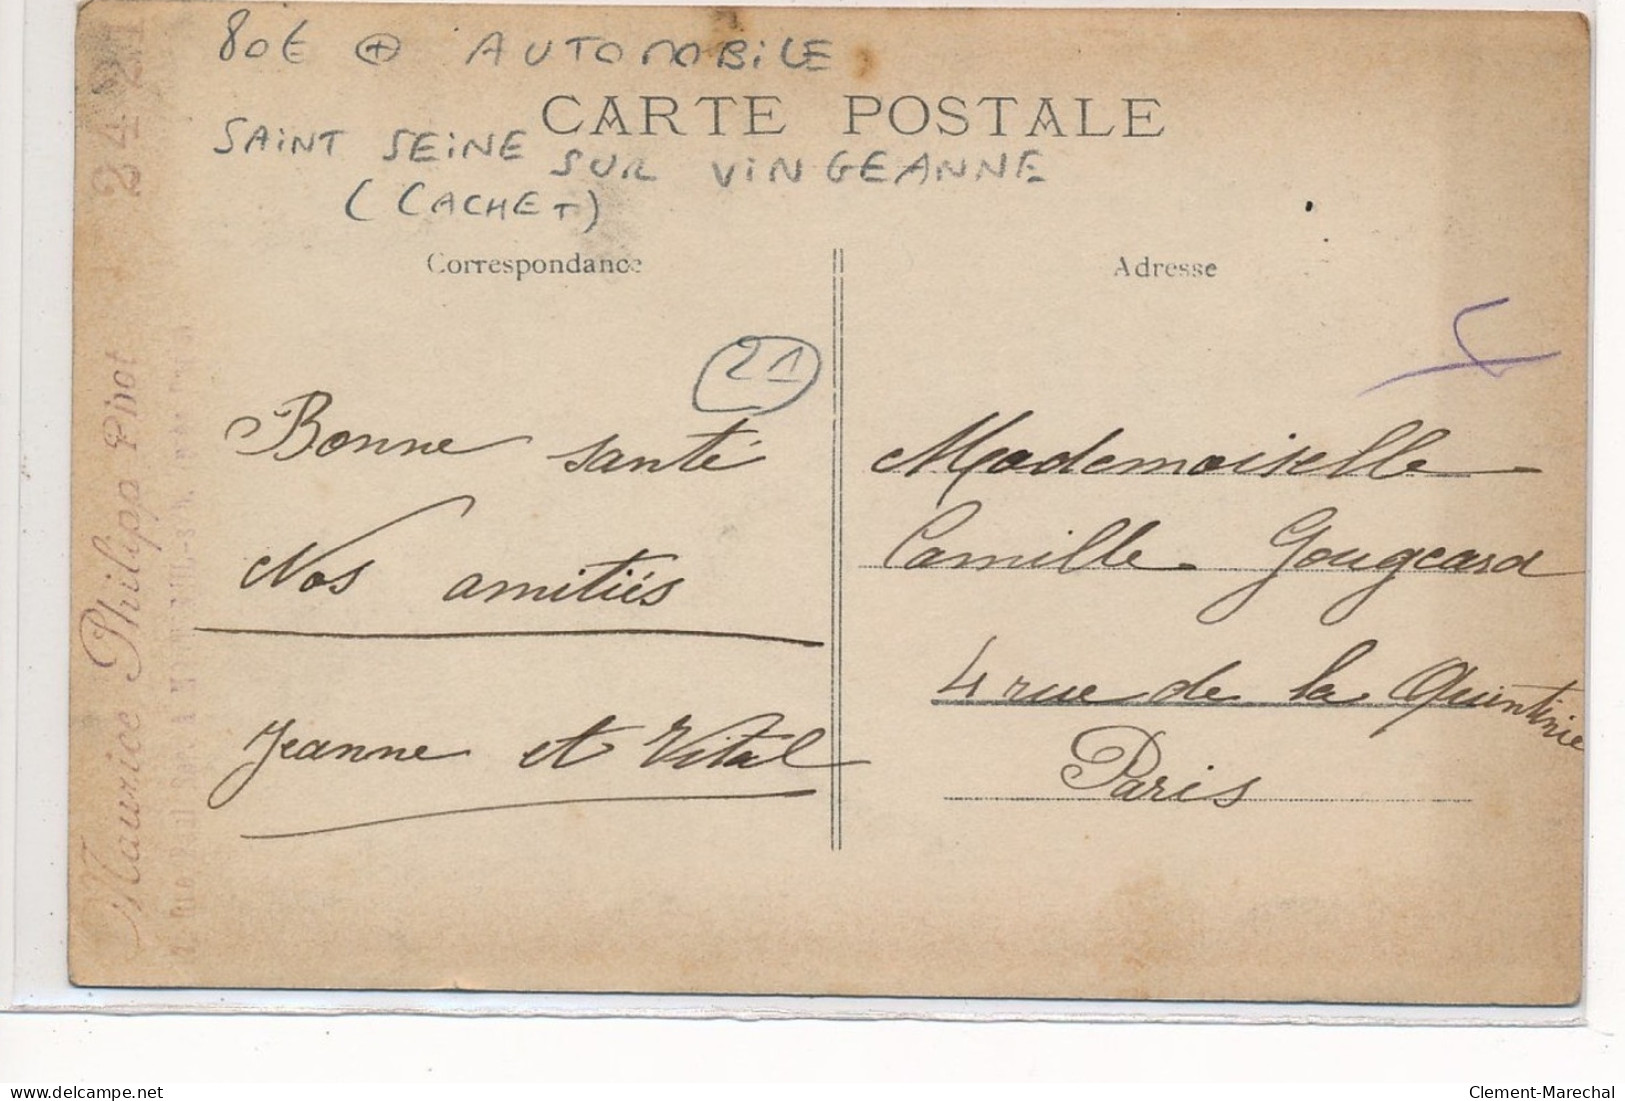 80€ ⊕ AUTOMOBILE
CARTE POSTALE
SAINT SEINE SUR VINGEANNE
(CACHET)
Correspondance
Adresse
21
Bonne santé
Nos amitiés
Jeanne et Vital
Mademoiselle
Camille Gougeard
4 rue de la Quintinie
Paris
Maurice Philipp Pivot
2421
delcampe.net
Clement-Marechal